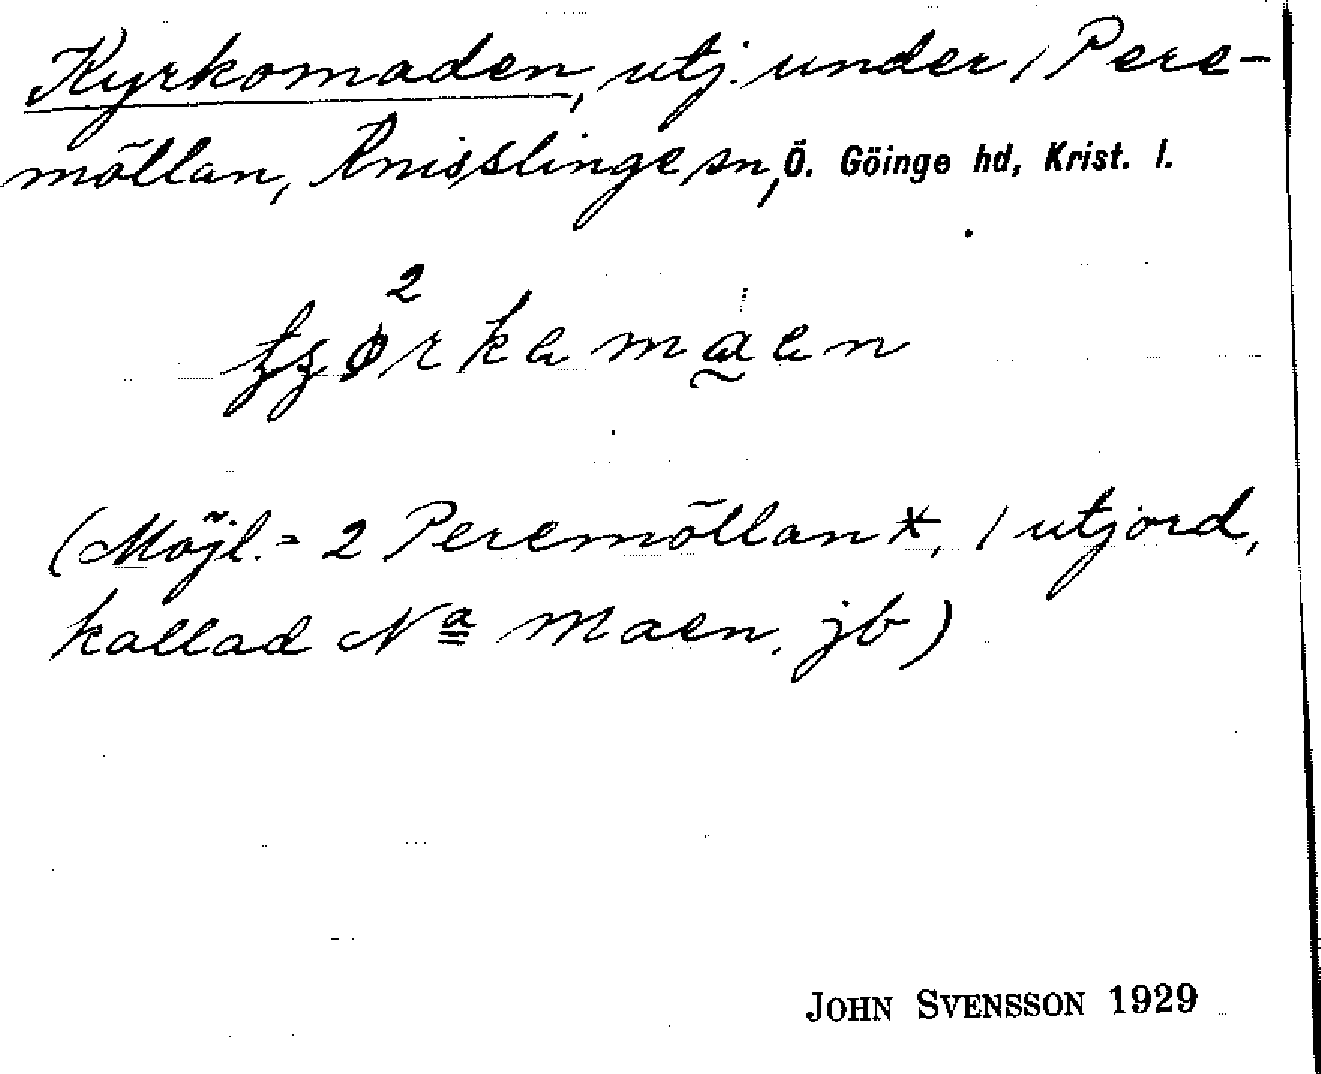 Kyrkomaden, utj. under 1 Pere-
möllan, Knisslinge sn, Ö. Göinge hd, Krist. l.
(Möjl. = 2 Peremöllan *, 1 utjord,
kallad Nª Maen. jb)
JOHN SVENSSON 1929